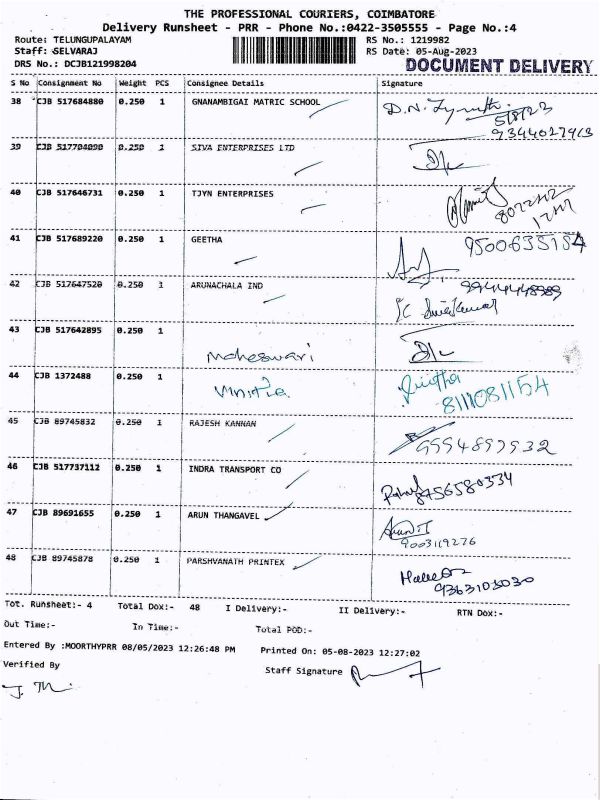 THE PROFESSIONAL COURIERS, COIMBATORE
Delivery Runsheet - PRR - Phone No.:0422-3505555 - Page No.:4
Route: TELUNGUPALAYAM RS No.: 1219982
Staff: SELVARAJ RS Date: 05-Aug-2023
DRS No.: DCJB121998204 DOCUMENT DELIVERY
S No Consignment No Weight PCS Consignee Details Signature
38 CJB 517684880 0.250 1 GNANAMBIGAI MATRIC SCHOOL D.N.
5/8/23
39 CJB 517704090 0.250 1 SIVA ENTERPRISES LTD
40 CJB 517646731 0.250 1 TJYN ENTERPRISES
41 CJB 517689220 0.250 1 GEETHA
42 CJB 517647520 0.250 1 ARUNACHALA IND
43 CJB 517642895 0.250 1
Maheswari
44 CJB 1372488 0.250 1
8111081154
45 CJB 89745832 0.250 1 RAJESH KANNAN
46 CJB 517737112 0.250 1 INDRA TRANSPORT CO
8756580334
47 CJB 89691655 0.250 1 ARUN THANGAVEL
9003119276
48 CJB 89745878 0.250 1 PARSHVANATH PRINTEX
9363103030
Tot. Runsheet:- 4 Total Dox:- 48 I Delivery:- II Delivery:- RTN Dox:-
Out Time:- In Time:- Total POD:-
Entered By :MOORTHYPRR 08/05/2023 12:26:48 PM Printed On: 05-08-2023 12:27:02
Verified By Staff Signature